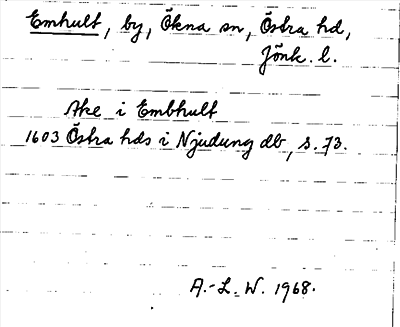 Emhult, by, Ökna sn, Östra hd,
Jönk. l.
Åke i Embhult
1603 Östra hds i Njudung db, s. 73.
A.-L. W. 1968.